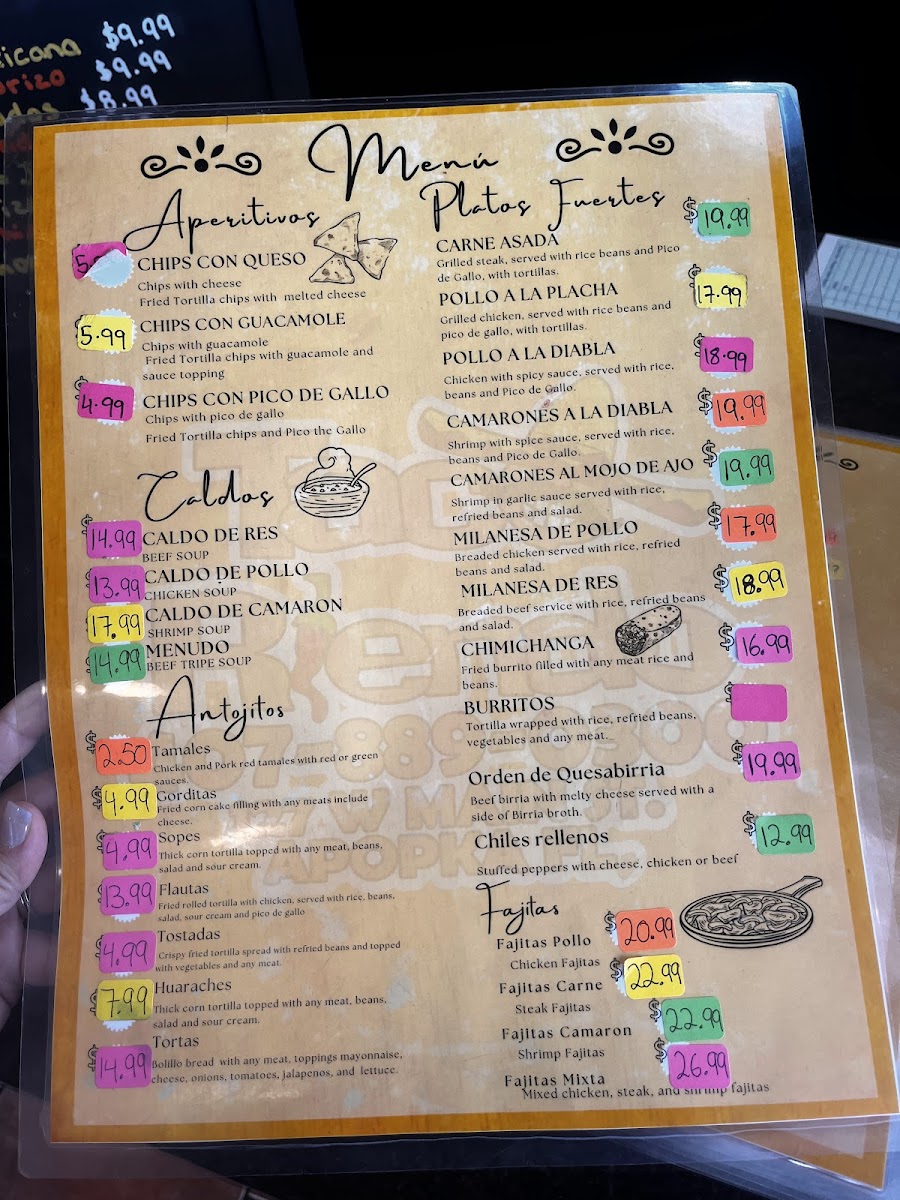 $9.99
$9.99
$8.99
Menú
Aperitivos
CHIPS CON QUESO
Chips with cheese
Fried Tortilla chips with melted cheese
$ 5.99 CHIPS CON GUACAMOLE
Chips with guacamole
Fried Tortilla chips with guacamole and
sauce topping
$ 4.99 CHIPS CON PICO DE GALLO
Chips with pico de gallo
Fried Tortilla chips and Pico the Gallo
Caldos
$ 14.99 CALDO DE RES
BEEF SOUP
$ 13.99 CALDO DE POLLO
CHICKEN SOUP
$ 17.99 CALDO DE CAMARON
SHRIMP SOUP
$ 14.99 MENUDO
BEEF TRIPE SOUP
Antojitos
$ 2.50 Tamales
Chicken and Pork red tamales with red or green
sauces.
$ 4.99 Gorditas
Fried corn cake filling with any meats include
cheese.
$ 4.99 Sopes
Thick corn tortilla topped with any meat, beans,
salad and sour cream.
$ 13.99 Flautas
Fried rolled tortilla with chicken, served with rice, beans,
salad, sour cream and pico de gallo
$ 4.99 Tostadas
Crispy fried tortilla spread with refried beans and topped
with vegetables and any meat.
$ 7.99 Huaraches
Thick corn tortilla topped with any meat, beans,
salad and sour cream.
$ 14.99 Tortas
Bolillo bread with any meat, toppings mayonnaise,
cheese, onions, tomatoes, jalapenos, and lettuce.
Platos Fuertes
CARNE ASADA $ 19.99
Grilled steak, served with rice beans and Pico
de Gallo, with tortillas.
POLLO A LA PLACHA $ 17.99
Grilled chicken, served with rice beans and
pico de gallo, with tortillas.
POLLO A LA DIABLA $ 18.99
Chicken with spicy sauce, served with rice,
beans and Pico de Gallo.
CAMARONES A LA DIABLA $ 19.99
Shrimp with spice sauce, served with rice,
beans and Pico de Gallo.
CAMARONES AL MOJO DE AJO $ 19.99
Shrimp in garlic sauce served with rice,
refried beans and salad.
MILANESA DE POLLO $ 17.99
Breaded chicken served with rice, refried
beans and salad.
MILANESA DE RES $ 18.99
Breaded beef service with rice, refried beans
and salad.
CHIMICHANGA $ 16.99
Fried burrito filled with any meat rice and
beans.
BURRITOS $
Tortilla wrapped with rice, refried beans,
vegetables and any meat.
Orden de Quesabirria $ 19.99
Beef birria with melty cheese served with a
side of Birria broth.
Chiles rellenos $ 12.99
Stuffed peppers with cheese, chicken or beef
Fajitas
Fajitas Pollo $ 20.99
Chicken Fajitas
Fajitas Carne $ 22.99
Steak Fajitas
Fajitas Camaron $ 22.99
Shrimp Fajitas
Fajitas Mixta $ 26.99
Mixed chicken, steak, and shrimp fajitas